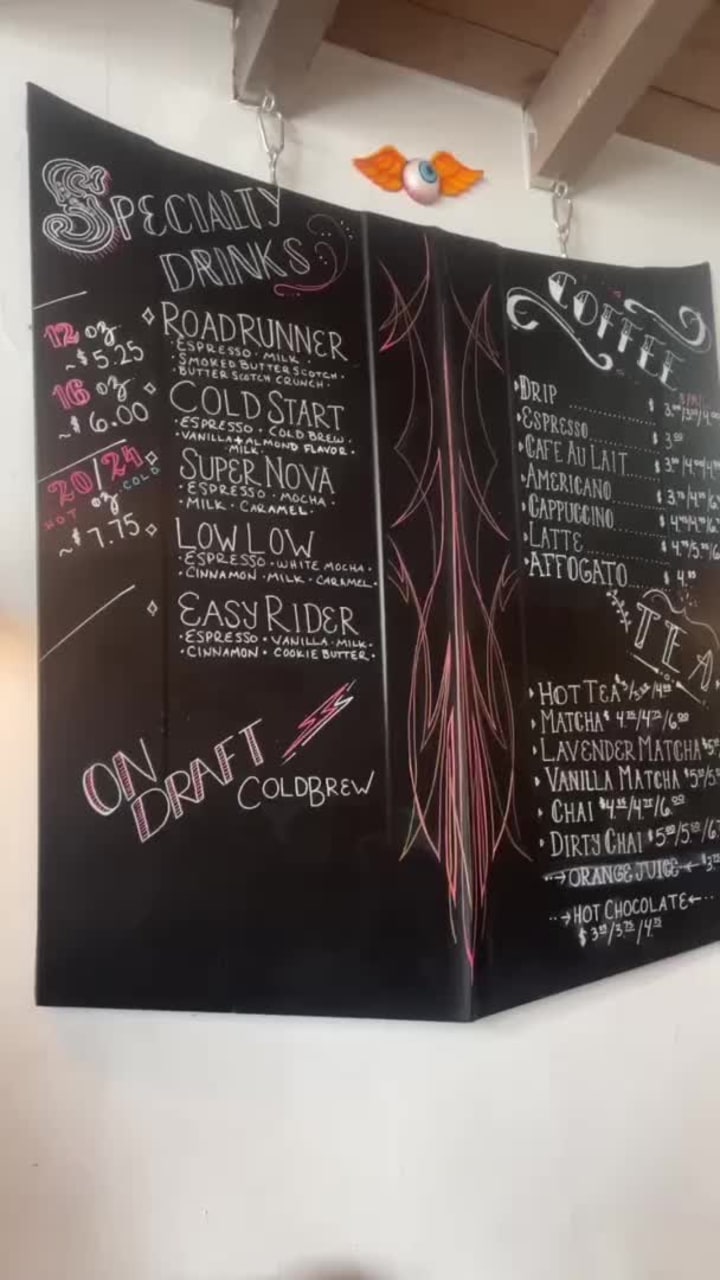 SPECIALTY
DRINKS
12 oz
~$5.25
16 oz
~$6.00
20/24
HOT oz COLD
~$7.75
ROADRUNNER
·ESPRESSO·MILK·
·SMOKED BUTTERSCOTCH·
·BUTTERSCOTCH CRUNCH·
COLD START
·ESPRESSO·COLD BREW·
·VANILLA+ALMOND FLAVOR·
MILK·
SUPER NOVA
·ESPRESSO·MOCHA·
·MILK·CARAMEL·
LOW LOW
·ESPRESSO·WHITE MOCHA·
·CINNAMON·MILK·CARAMEL·
EASY RIDER
·ESPRESSO·VANILLA·MILK·
·CINNAMON·COOKIE BUTTER·
ON
DRAFT
COLDBREW
COFFEE
DRIP
ESPRESSO
CAFE AU LAIT
AMERICANO
CAPPUCCINO
LATTE
AFFOGATO
TEA
HOT TEA
MATCHA
LAVENDER MATCHA
VANILLA MATCHA
CHAI
DIRTY CHAI
→ORANGE JUICE←
→HOT CHOCOLATE←